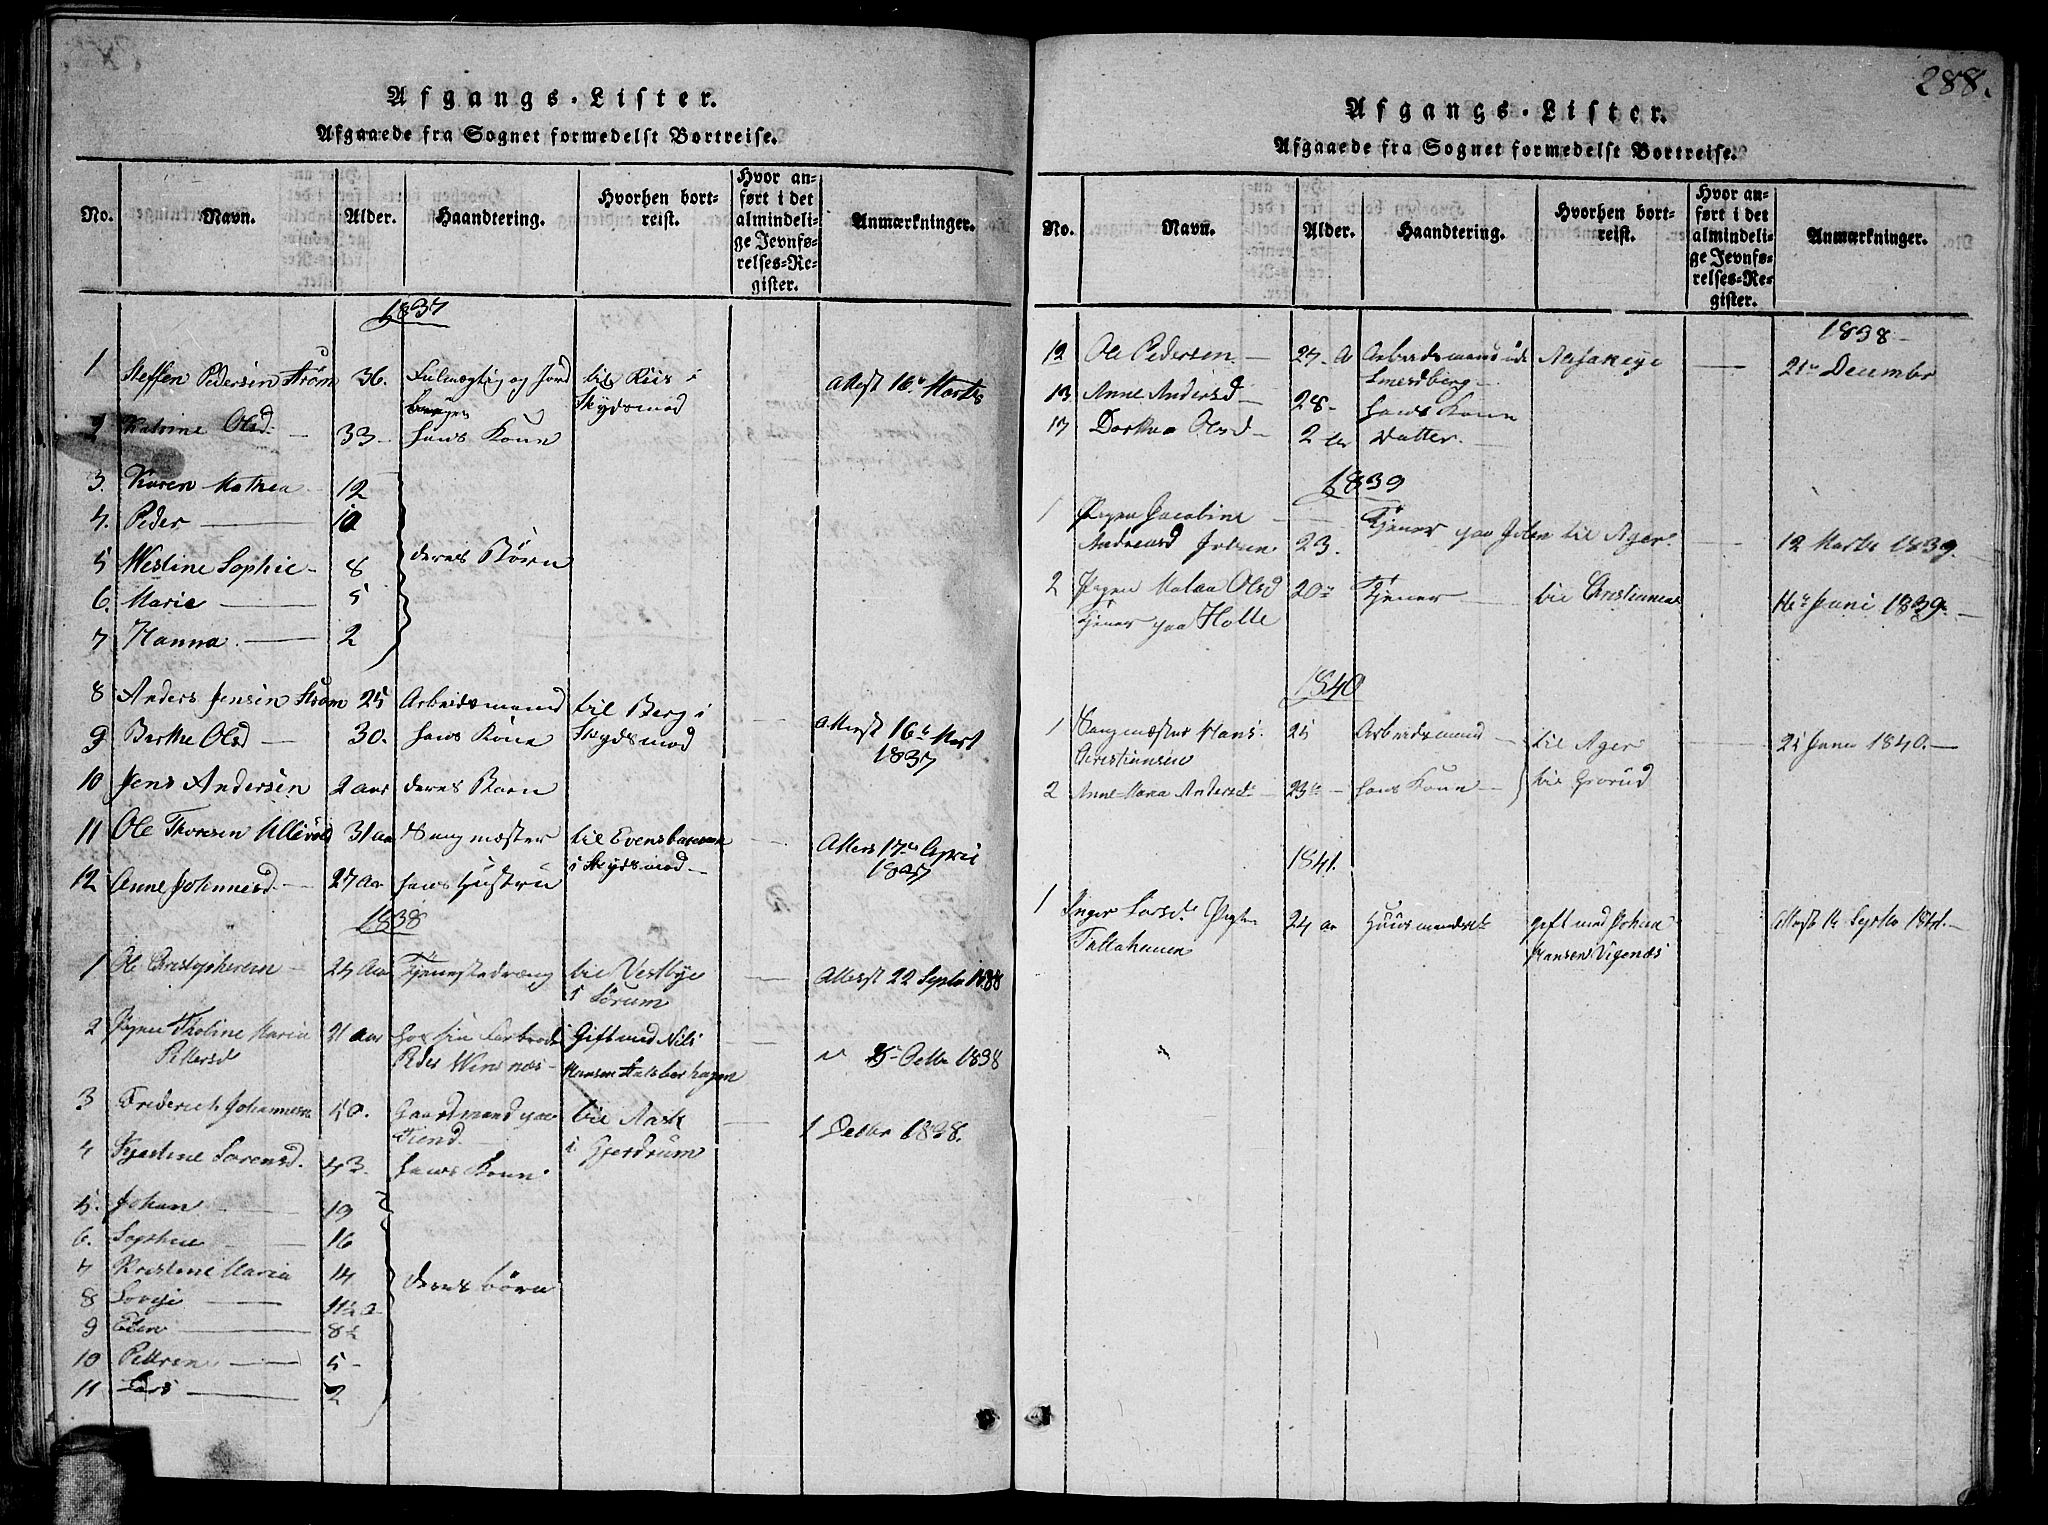 Afgangs-Lister.
Afgaaede fra Sognet formedelst Bortreise.
No. Navn. Alder. Haandtering. Hvorhen bortreist. Hvor anført i det almindelige Jevnførelses-Register. Anmærkninger.
1837
1 Steffen Pedersen Strøm 36. Fulmægtig og Jord til Riis i Attest 16de Marts
Skydsmod
2 Katrine Olsd. 33 hans Kone
3. Karen Mathea 12
4. Peder 10
5 Westine Sophie 8 deres Børn
6. Marie 5
7 Hanna 2
8 Anders Jensen Strøm 25 Arbeidsmand til Berg i Attest 16de Mart
9 Berthe Olsd 30. hans Kone Skydsmod 1837
10 Jens Andersen 2 aar deres Barn
11 Ole Thoresen Ullevold 31 aar Sangmæster til Evensbaraune Attest 17de April
12 Anne Johannesd. 27 Aar hans Hustru i Skydsmod 1837
1838
1 Ole Christophersen 24 Aar Tjenestedræng til Vestbye Attest 22 Septbr 1838
i Sørum
2 Pigen Tholine Maria 21 aar hos sin Farbroder Gift med Nils
Pettersd Peder Hansen 5te Octbr 1838
3 Frederich Johannesen 50. Gaardmand paa til Aask 1 Octbr 1838.
4 Kjestine Sørensd. 43. hans Kone i Gjerdrum
5. Johan 19
6. Sophie 16
7 Kristine Maria 14 deres børn
8 11½
9 8½
10 Pettren 5
11 Lars 2
288.
Afgangs-Lister.
Afgaaede fra Sognet formedelst Bortreise.
No. Navn. Alder. Haandtering. Hvorhen bortreist. Hvor anført i det almindelige Jevnførelses-Register. Anmærkninger.
1838
12 Ole Pedersen 27 A Arbeidsmand 21de December
13 Anne Andersd 28 hans Kone
Olsd 2 datter
1839
1 Pigen Jacobine
Andreasd 23. Tjener paa til Ager. 12 Marts 1839.
2 Pigen Olsd 20 Tjener til Christiania 16de Juni 1839.
Tjener paa Holte
1840
1 Sangmæster Hans 25 Arbeidsmand til Ager 1840.
Christiansen
2 Anne Maria Andersd. 23 hans Kone til Grorud
1841.
1 Inger Larsd. Pigen 24 aar gift med Johan Attest 14 Septbr 1841.
Hansen Vigenæs